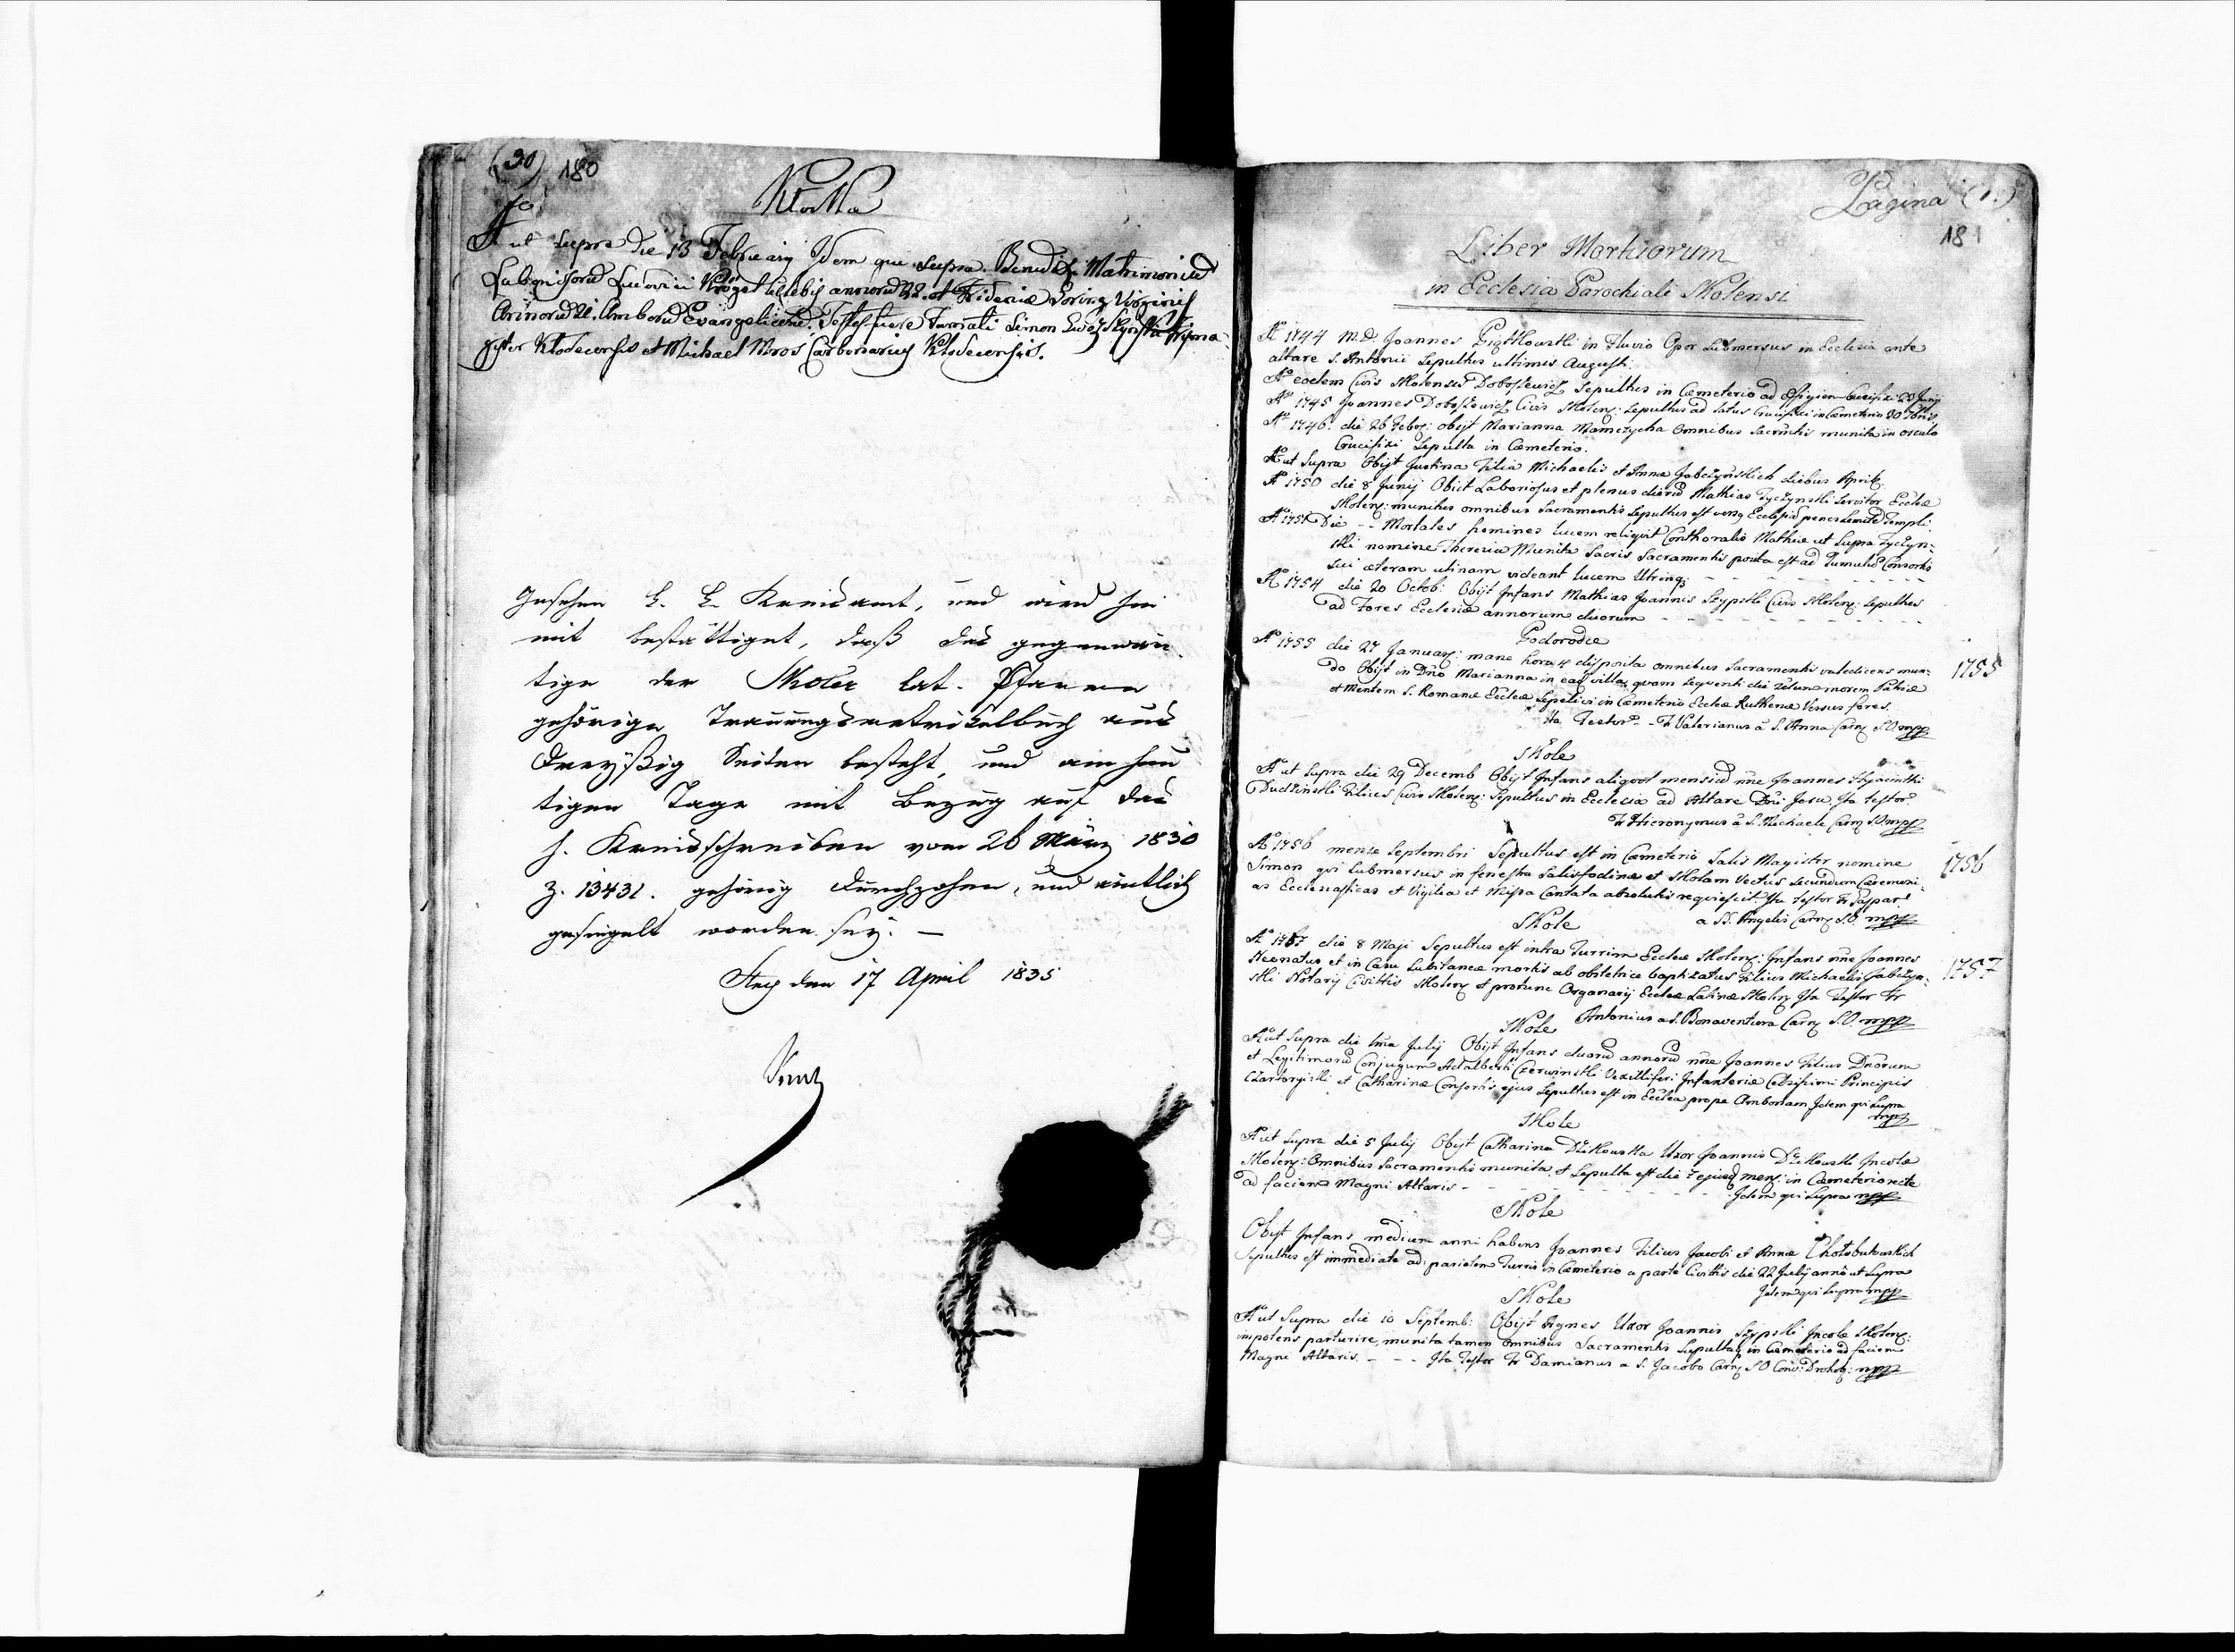 (30) 180
Kłodka
A° ut supra die 13 Februarij Idem qui supra. Benedixi Matrimonium
Subgenisorum Ludovici Krögel caelebis annorum 22. et Fridericae Loring Virginis
Annorum 21. Amborum Evangelicorum. Testes fuere Famati Simon
gister Klodecensis et Michael Mros Carbonarius Klodecensis.
Gesehen k. k. Kreisamt, und wird hie
mit bestättiget, daß das gegenwär
tige der Skoler lat. Pfarre
gehörige Trauungsmatrikelbuch aus
Dreyßig Seiten besteht, und am heu
tigen Tage mit Bezug auf das
h. Kreisschreiben vom 26 März 1830
Z. 13431. gehörig durchzohen, und amtlich
gesiegelt worden sey. —
Stry den 17 April 1835
Pagina (1.)
181
Liber Mortuorum
in Ecclesia Parochiali Skolensi
A° 1744 M.D. Joannes Piątkowski in Fluvio Opor submersus in Ecclesia ante
altare S. Antonii Sepultus ultimis Augusti.
A° eodem Civis Skolensis Doboszewicz Sepultus in Cæmeterio ad effigiem Crucifixi 20 Junij
A° 1745 Joannes Doboszewicz Civis Skolens: Sepultus ad latus Crucifixi in Cæmeterio 20
A° 1746. die 26 Febr: obijt Marianna Mamczycha Omnibus Sacrmtis munita in osculo
Crucifixi Sepulta in Cæmeterio.
A° ut Supra Obijt Justina Filia Michaelis et Annæ Jabczyńskich diebus Aprilis.
A° 1750 die 8 Junij Obiit Laboriosus et plenus dierum Mathias Tyczynski Servitor Eccleæ
Skolens: munitus omnibus Sacramentis Sepultus est versus Ecclesiam penes Templi.
A° 1751 Die -- Mortales homines lucem reliquit Conthoralis Mathiæ ut Supra Tyczyn=
ski nomine Theresia Munita Sacris Sacramentis posita est ad Tumulum Consortis
sui æteram utinam videant lucem Utrinq;
A° 1754 die 20 Octob: Obijt Infans Mathias Joannis Szypski Civis Skolens: Sepultus
ad Fores Ecclesiæ annorum duorum
Podorodce
A° 1755 die 27 Januarij: mane hora 4 disposita omnibus Sacramentis valedicens mun=
do Obijt in Dno Marianna in eadem villa, quam sequenti die ritum morem Patriæ
et Mentem S. Romanæ Eccleæ Sepelivi in Cæmeterio Eccleæ Ruthenæ Versus fores.
Ita Testor - Fr Valerianus à S. Anna Carm S.O. mpp
1755
Skole
A° ut Supra die 29 Decemb Obijt Infans aliquot mensium nne Joannes Hyacinthi
Dudzinski Filius Civis Skolens: Sepultus in Ecclesia ad Altare Dni Jesu. Ita testor
Fr Hieronymus à S. Michaele Carm S.O. mpp
A° 1756 mense Septembri Sepultus est in Cæmeterio Salis Magister nomine
Simon qui submersus in fenestra Salisfodinæ et Skolam Vectus secundum Cæremoni=
as Ecclesiasticas et Vigilia et Missa Cantata absolutis requiescit Ita testor Fr Gaspar
a SS. Angelis Carm S.O. mpp
1756
Skole
A° 1757 die 8 Maji Sepultus est intra Turrim Eccleæ Skolens: Infans nne Joannes
Neonatus et in Casu Subitaneæ mortis ab obstetrice baptizatus Filius Michaelis Jabczyn=
ski Notarij Civittis Skolens et protunc Organarij Eccleæ Latinæ Skolens Ita Testor Fr
Antonius a S. Bonaventura Carm S.O. mpp
1757
Skole
A° ut Supra die 1ma Julij Obijt Infans duorum annorum nne Joannes Filius Dnorum
et Legitimorum Conjugum Adalberti Czerwinski Vexilliferi Infanteriæ Celsissimi Principis
Czartoryiski et Catharinæ Consortis ejus Sepultus est in Ecclea prope Ambonam Idem qui Supra
mpp
Skole
A° ut Supra die 5 Julij Obijt Catharina Dzikowska Uxor Joannis Dzikowski Incolæ
Skolens: Omnibus Sacramentis munita et Sepulta est die 7 ejusd mens: in Cæmeterio recte
ad faciem Magni Altaris
Idem qui Supra mpp
Skole
Obijt Infans medium anni habens Joannes Filius Jacobi et Annæ Chołobutowskich
Sepultus est immediate ad parietem Turris in Cæmeterio a parte Civittis die 22 Julij anno ut Supra
Idem qui Supra mpp
Skole
A° ut Supra die 10 Septemb: Obijt Agnes Uxor Joannis Szypski Incolæ Skolens:
impotens parturire, munita tamen Omnibus Sacramentis Sepulta in Cæmeterio ad faciem
Magni Altaris. - - - Ita Testor Fr Damianus a S. Jacobo Carm S.O Conv: Drohob: mpp